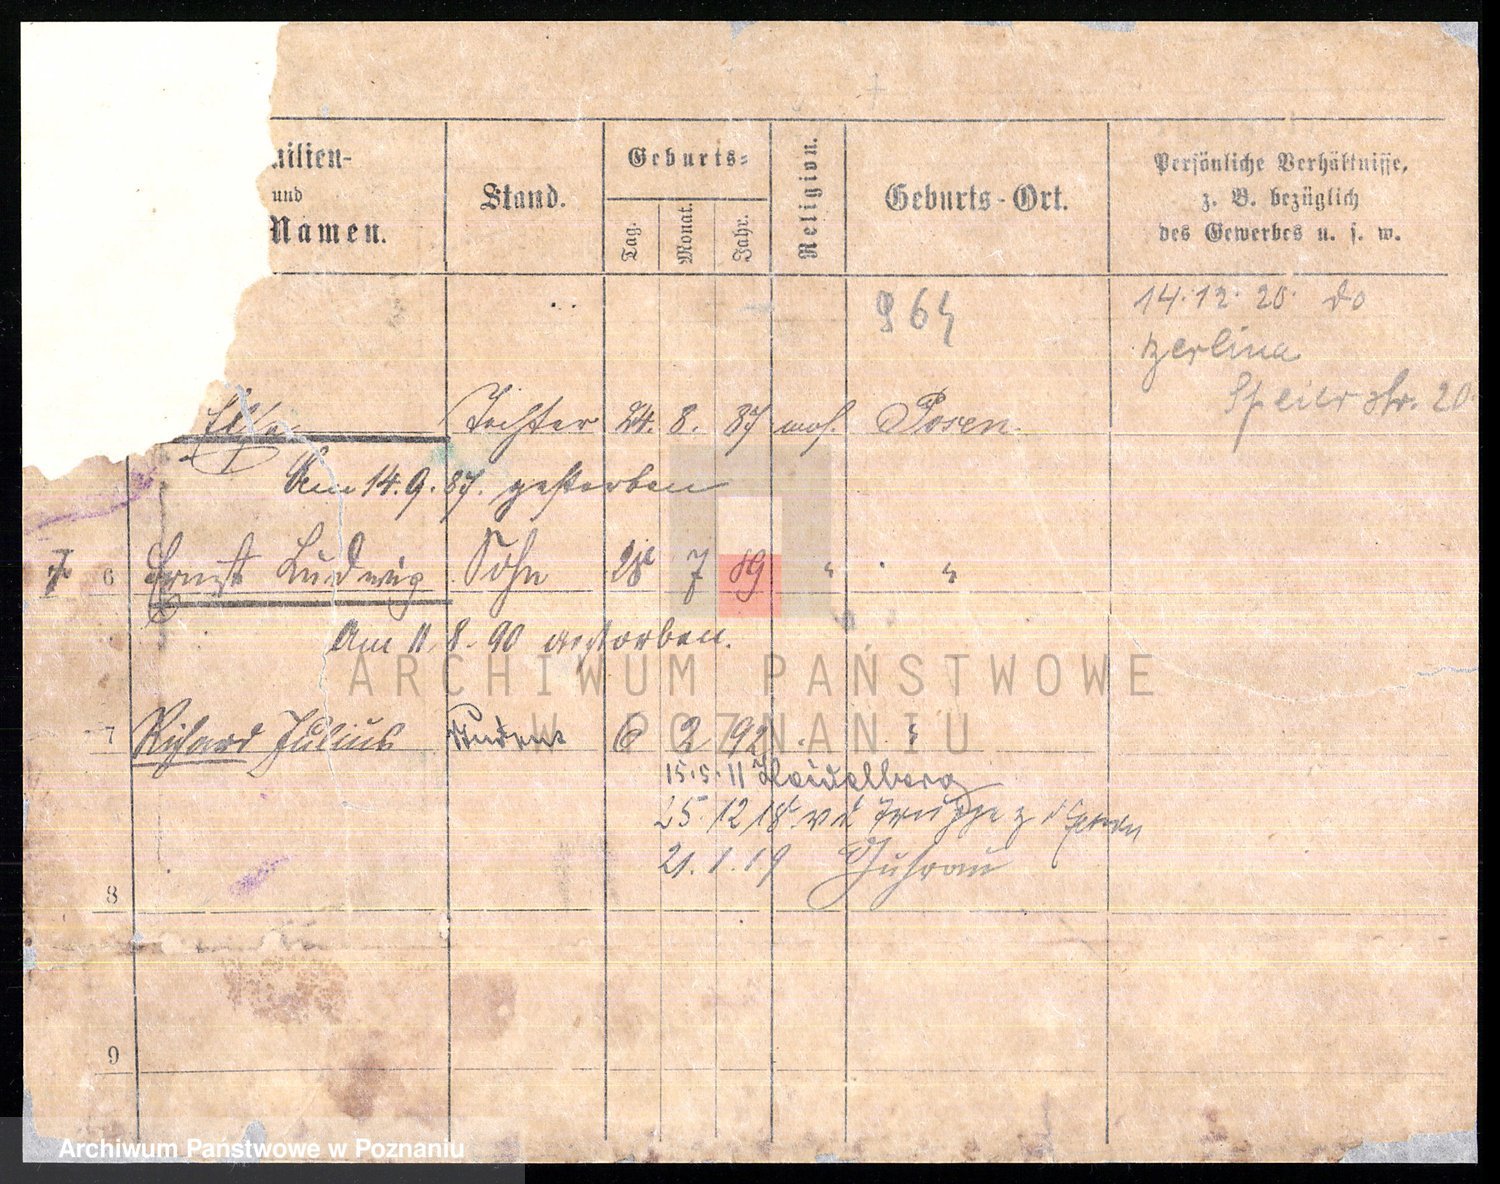 milien-
und
Namen.
Stand.
Geburts-
Tag.
Monat.
Jahr.
Religion.
Geburts-Ort.
Persönliche Verhältnisse,
z. B. bezüglich
des Gewerbes u. s. w.
964
14.12.20. do
Berlina
Speierstr. 20.
Else Tochter 24. 8. 87 mos. Posen.
Am 14.9.87. gestorben
6 Ernst Ludwig Sohn 28 7 89 " "
Am 11.8.90 gestorben.
7 Richard Julius Student 6 2 92 "
15.5.11 Heidelberg
25.12.18 v d Truppe z d
21.1.19 Guhrau
8
9
ARCHIWUM PAŃSTWOWE
W POZNANIU
Archiwum Państwowe w Poznaniu